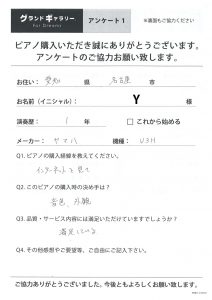 グランドギャラリー
For Dreams
アンケート1
※裏面もご協力ください
ピアノ購入いただき誠にありがとうございます。
アンケートのご協力お願い致します。
お住い: 愛知 県 名古屋 市
お名前(イニシャル): Y 様
演奏歴: 1 年 □ これから始める
メーカー: ヤマハ 機種: U3H
Q1.ピアノの購入経緯を教えてください。
インターネットを見て
Q2.このピアノの購入時の決め手は?
音色、外観
Q3.品質・サービス内容には満足いただけていますでしょうか?
満足している
Q4.その他感想やご要望等、ご自由にご記入下さい。
ご協力ありがとうございました。今後ともよろしくお願い致します。